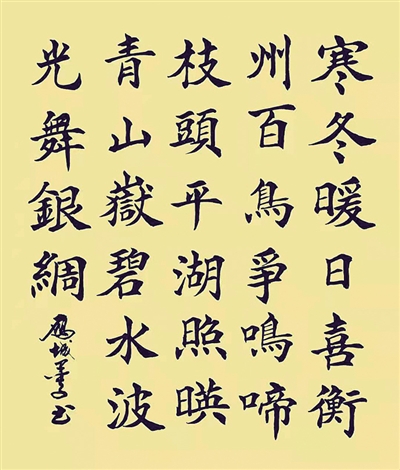 寒冬暖日喜衡
州百鳥爭鳴啼
枝頭平湖照暎
青山嶽碧水波
光舞銀綢
鴈城书